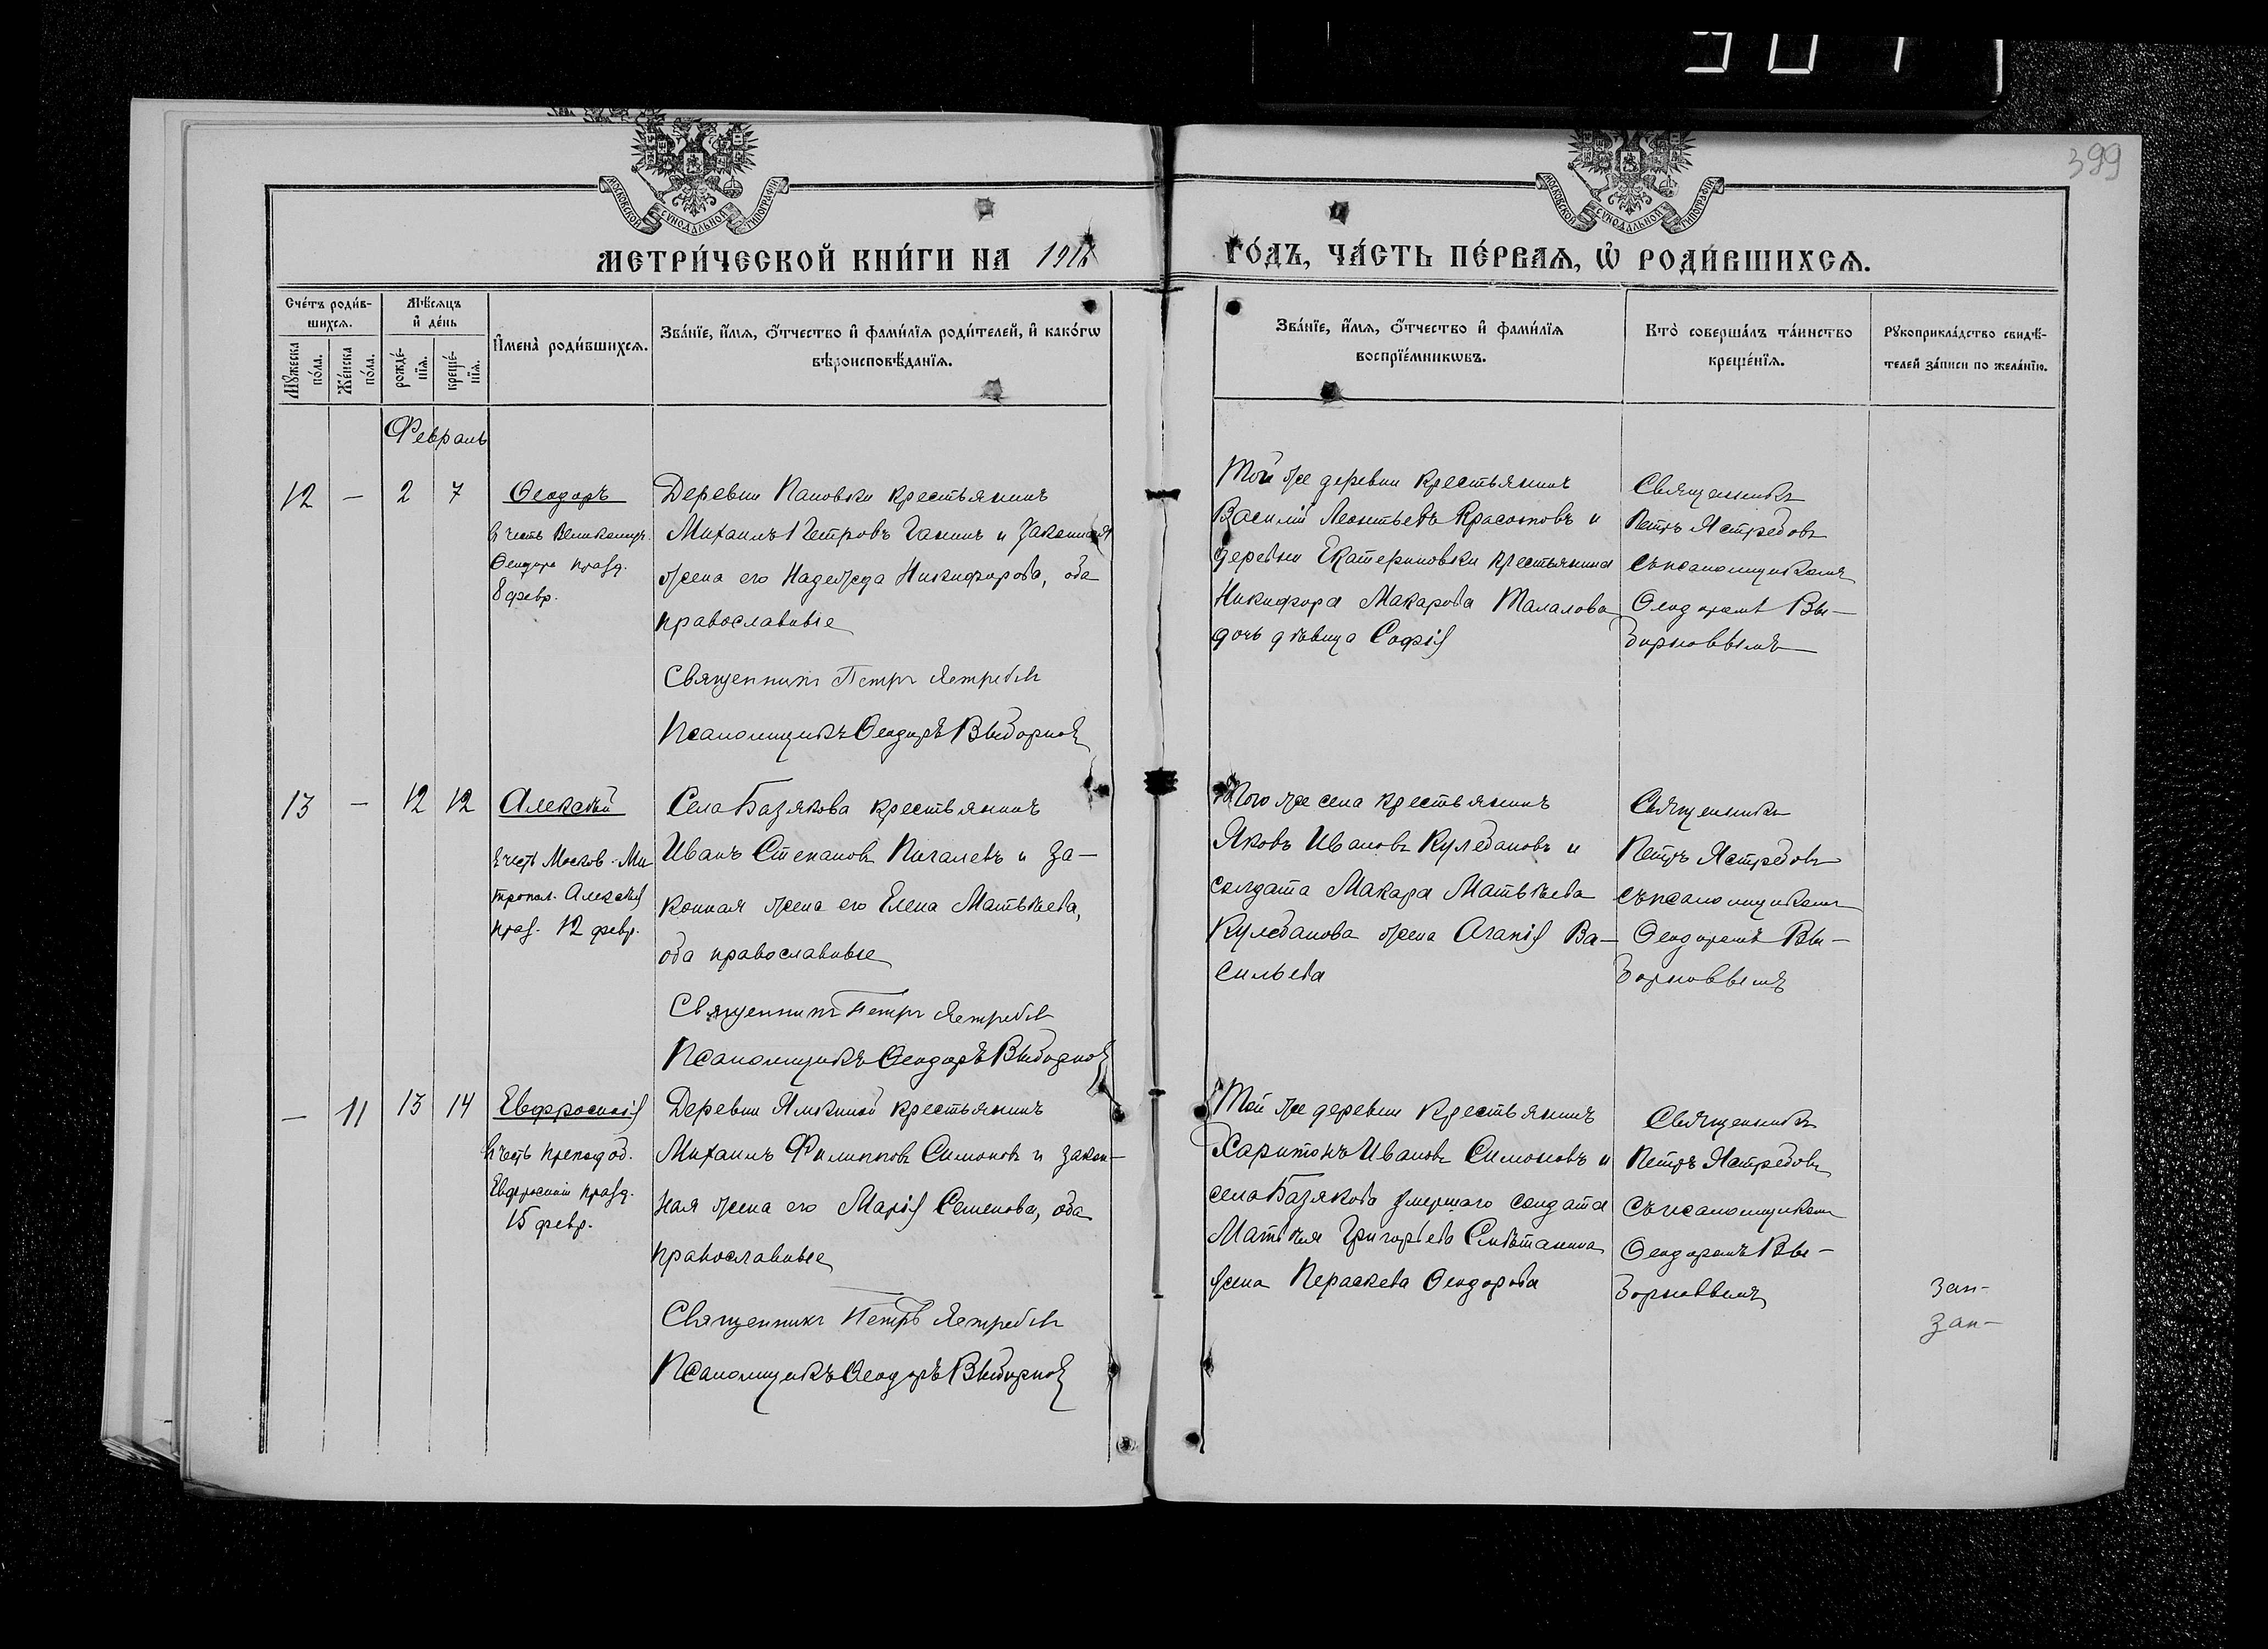 399
МОСКОВСКОЙ СѴНОДАЛЬНОЙ ТИПОГРАФІИ
МОСКОВСКОЙ СѴНОДАЛЬНОЙ ТИПОГРАФІИ
МЕТРИ́ЧЕСКОЙ КНИ́ГИ НА
ГО́ДЪ, ЧА́СТЬ ПЕ́РВАЯ, Ѡ҆ РОДИ́ВШИХСЯ.
Сче́тъ роди́в-
шихся.
Мꙋ́жеска по́ла.
Же́нска по́ла.
Мѣ́сяцъ
и҆ де́нь
рожде́-
нїѧ.
креще́-
нїѧ.
И҆мена̀ роди́вшихся.
Зва́нїе, и҆́мя, ѻ҆́тчество и҆ фами́лїя роди́телей, и҆ како́гѡ
вѣроисповѣ́данїя.
Зва́нїе, и҆́мя, ѻ҆́тчество и҆ фами́лїя
воспрїе́мникѡвъ.
Кто̀ соверша́лъ та́инство
креще́нїя.
Рꙋкоприкла́дство свидѣ́-
телей за́писи по жела́нїю.
Февраль
12 — 2 7 Ѳеодоръ
в честь Великомуч.
Ѳеодора празд.
8 февр.
Деревни Пановки крестьянинъ
Михаилъ Петровъ Ганинъ и законная
жена его Надежда Никифорова, оба
православные
Священникъ Петръ Ястребовъ
Псаломщикъ Ѳеодоръ Выборновъ
Той же деревни крестьянинъ
Василій Леонтьевъ Красотовъ и
деревни Екатериновки крестьянина
Никифора Макарова Талалова
дочь дѣвица Софія
Священникъ
Петръ Ястребовъ
съ псаломщикомъ
Ѳеодоромъ Вы-
борновымъ
13 — 12 12 Алексѣй
в честь Москов. Ми
тропол. Алексѣя
празд. 12 февр.
Села Базякова крестьянинъ
Иванъ Степановъ Пигалевъ и за-
конная жена его Елена Матвѣева,
оба православные
Священникъ Петръ Ястребовъ
Псаломщикъ Ѳеодоръ Выборновъ
Того же села крестьянинъ
Яковъ Ивановъ Кулебановъ и
солдата Макара Матвѣева
Кулебанова жена Агапія Ва-
сильева
Священникъ
Петръ Ястребовъ
съ псаломщикомъ
Ѳеодоромъ Вы-
борновымъ
— 11 13 14 Евфросинія
в честь преподоб.
Евфросиніи празд.
15 февр.
Деревни Ямкиной крестьянинъ
Михаилъ Филипповъ Симоновъ и закон-
ная жена его Марія Семенова, оба
православные
Священникъ Петръ Ястребовъ
Псаломщикъ Ѳеодоръ Выборновъ
Той же деревни крестьянинъ
Харитонъ Ивановъ Симоновъ и
села Базякова умершаго солдата
Матвѣя Григорьева
жена Параскева Ѳеодорова
Священникъ
Петръ Ястребовъ
съ псаломщикомъ
Ѳеодоромъ Вы-
борновымъ